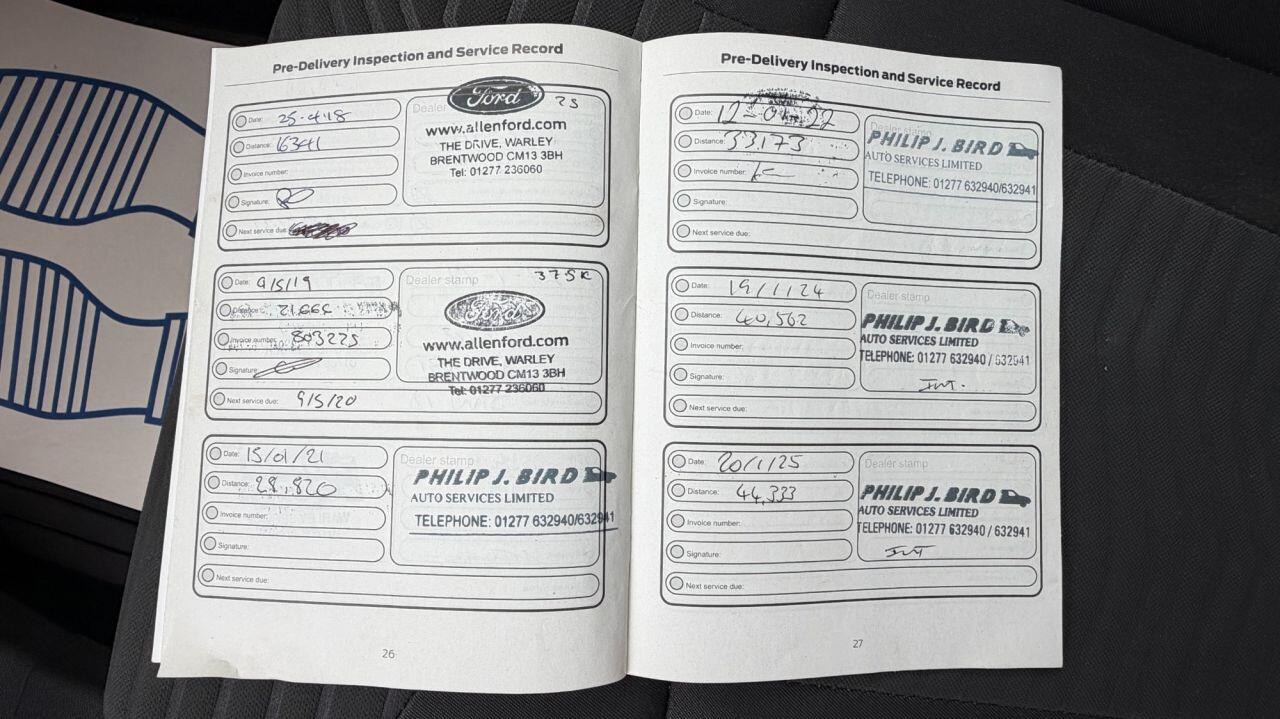 Pre-Delivery Inspection and Service Record
Date: 25-4-18
Distance: 16341
Invoice number:
Signature:
Next service due:
Dealer
Ford
25
www.allenford.com
THE DRIVE, WARLEY
BRENTWOOD CM13 3BH
Tel: 01277 236060
Date: 9/5/19
Distance:
Invoice number: 803225
Signature:
Next service due: 9/5/20
Dealer stamp
37.5K
Ford
www.allenford.com
THE DRIVE, WARLEY
BRENTWOOD CM13 3BH
Tel: 01277 236060
Date: 15/01/21
Distance: 28,820
Invoice number:
Signature:
Next service due:
Dealer stamp
PHILIP J. BIRD
AUTO SERVICES LIMITED
TELEPHONE: 01277 632940/632941
26
Pre-Delivery Inspection and Service Record
Date:
Distance: 33,173
Invoice number:
Signature:
Next service due:
Dealer stamp
PHILIP J. BIRD
AUTO SERVICES LIMITED
TELEPHONE: 01277 632940/632941
Date: 19/1/24
Distance: 40,562
Invoice number:
Signature:
Next service due:
Dealer stamp
PHILIP J. BIRD
AUTO SERVICES LIMITED
TELEPHONE: 01277 632940 / 632941
Date: 20/1/25
Distance: 44,333
Invoice number:
Signature:
Next service due:
Dealer stamp
PHILIP J. BIRD
AUTO SERVICES LIMITED
TELEPHONE: 01277 632940 / 632941
27